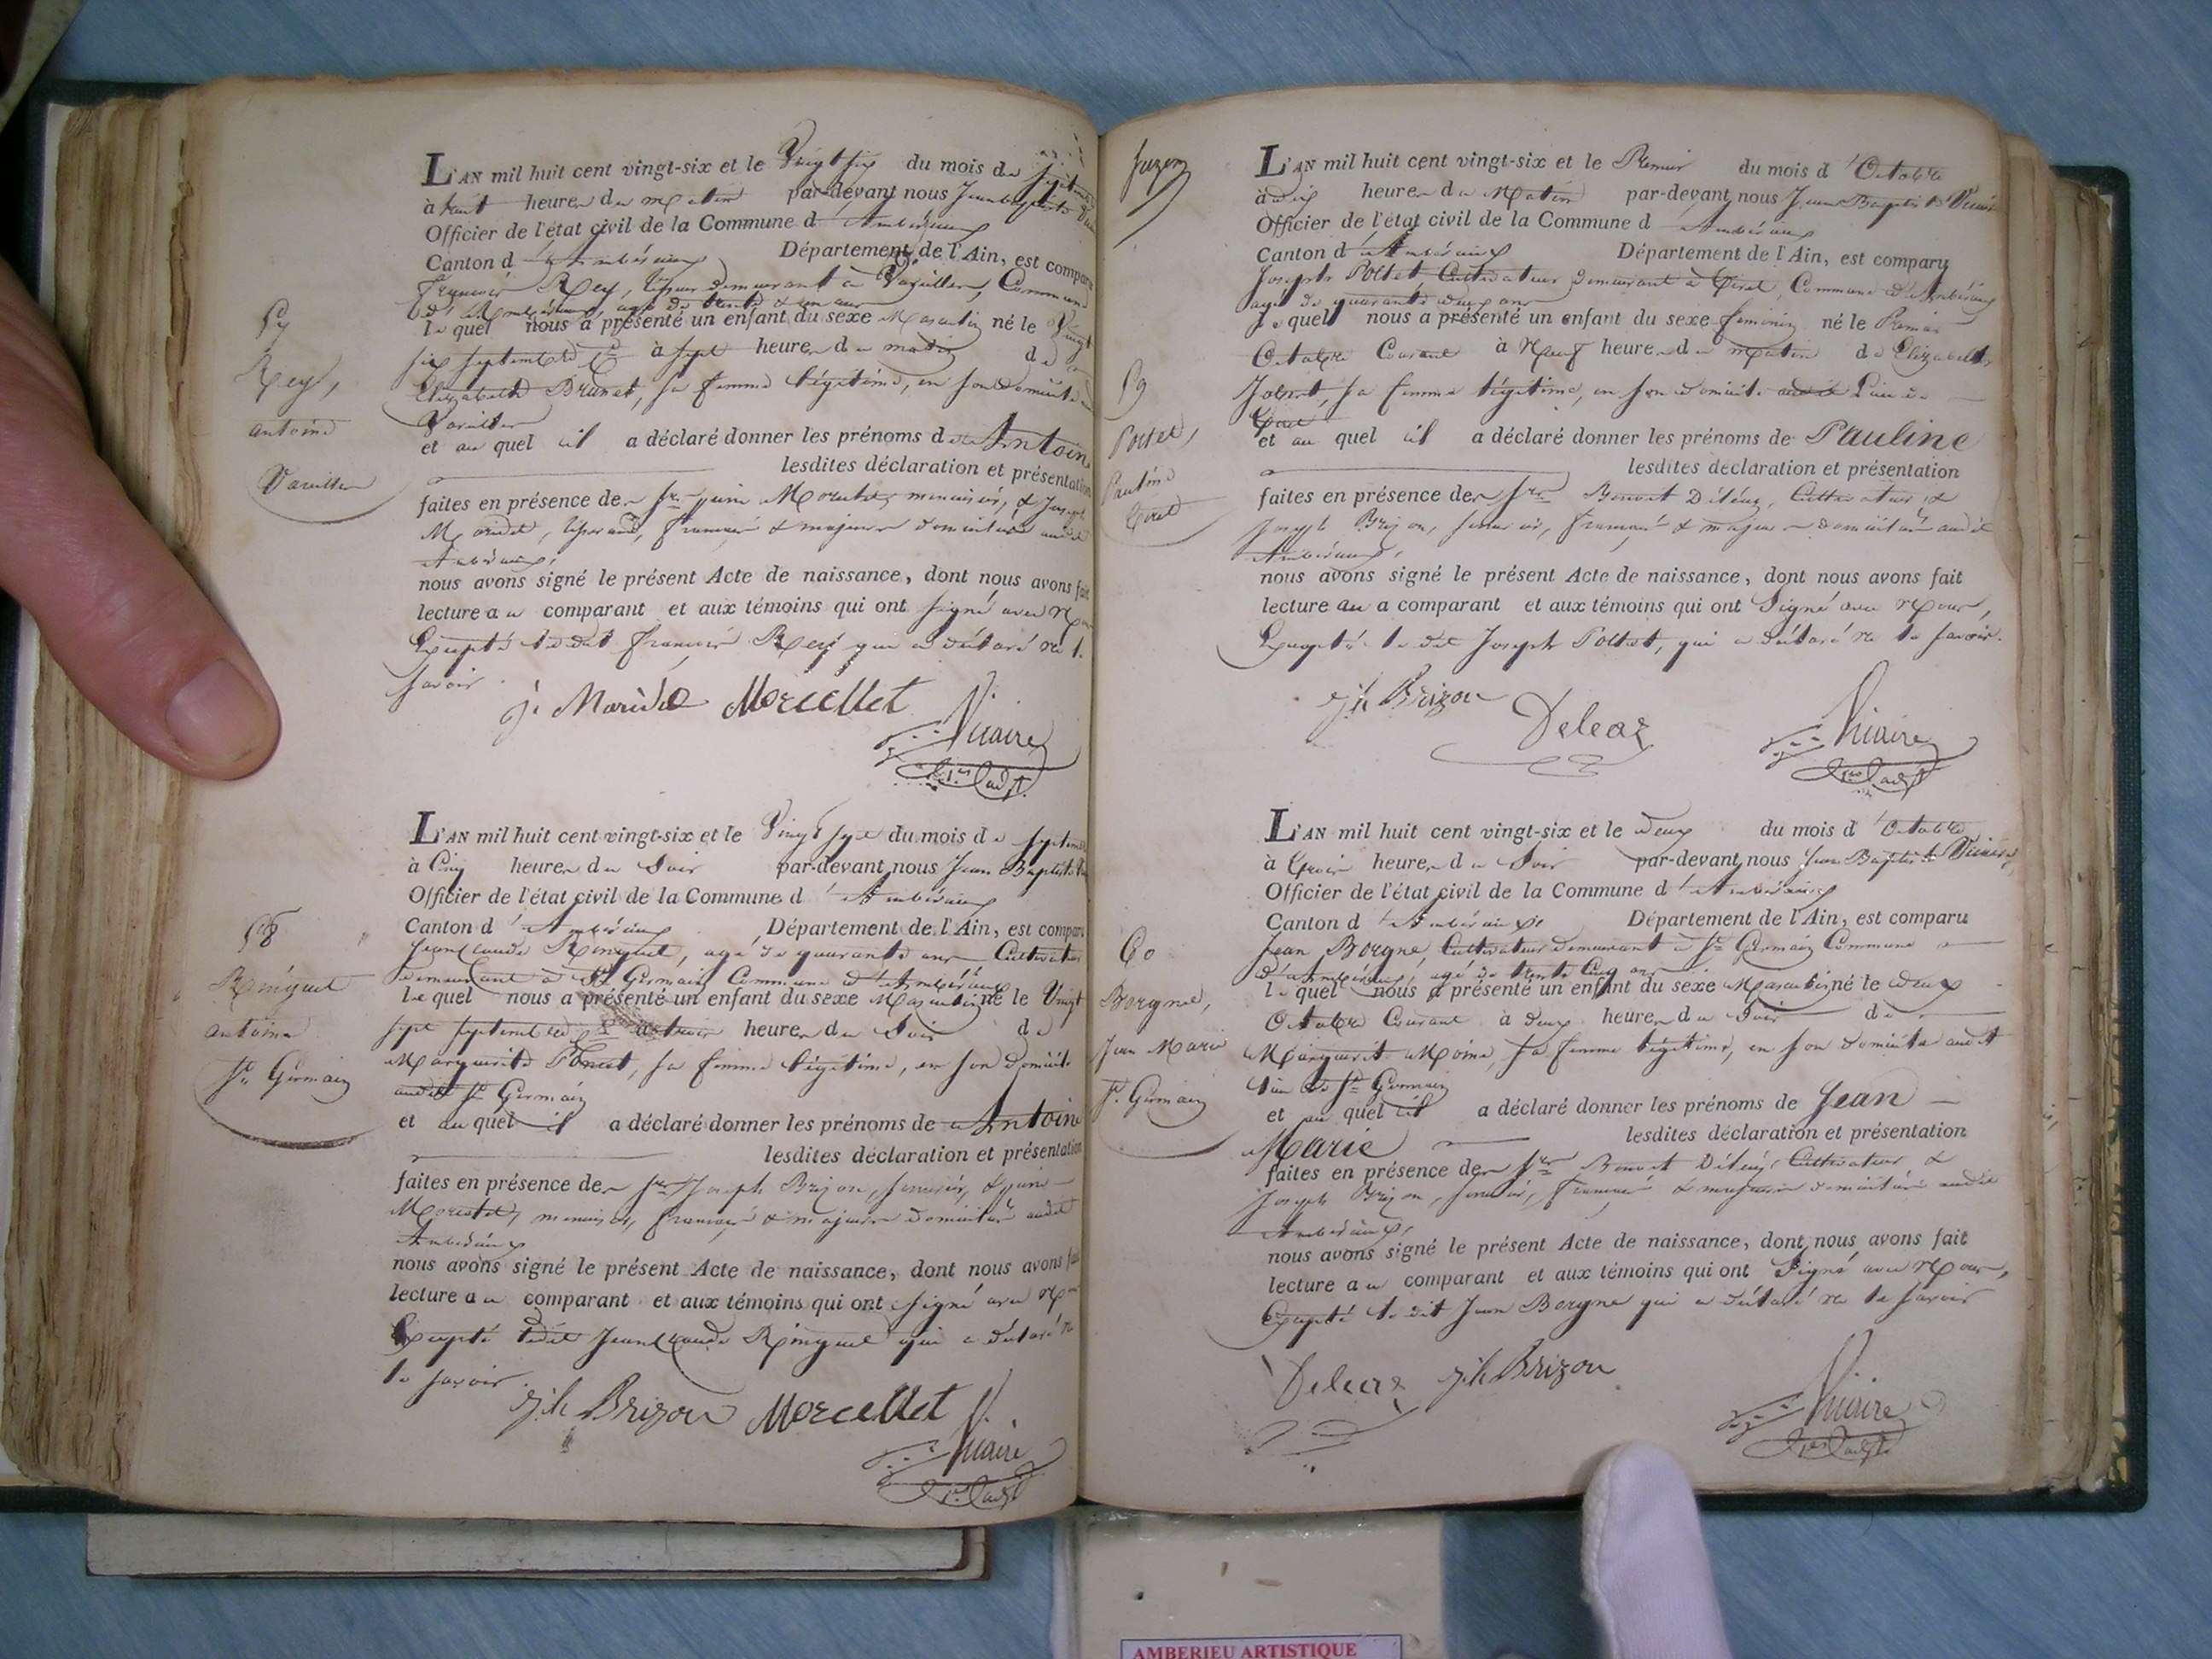 57
Rey,
antoine
Vareilles
L'AN mil huit cent vingt-six et le Vingt six du mois de septembre
à huit heures du matin par-devant nous Jean Baptiste
Officier de l'état civil de la Commune d'Ambérieux
Canton d'Ambérieux Département de l'Ain, est comparu
François Rey, demeurant à Vareilles, Commune
d'Ambérieux, agé de trente & un ans
lequel nous a présenté un enfant du sexe Masculin né le Vingt
six septembre à sept heures du matin de
Elizabeth Brunet, sa femme légitime, en son domicile
Vareilles
et au quel il a déclaré donner les prénoms de Antoine
lesdites déclaration et présentation
faites en présence des Srs Morcellet, menuisier, & Joseph
Maridet, français & majeurs domiciliés audit
Ambérieux,
nous avons signé le présent Acte de naissance, dont nous avons fait
lecture au comparant et aux témoins qui ont signé avec Nous
Excepté ledit françois Rey qui a déclaré ne le
savoir.
j. Maridet Morcellet Vicaire
58
Ringuet
antoine
St. Germain
L'AN mil huit cent vingt-six et le Vingt sept du mois de septembre
à Cinq heures du Soir par-devant nous Jean Baptiste
Officier de l'état civil de la Commune d'Ambérieux
Canton d'Ambérieux Département de l'Ain, est comparu
Jean Claude Ringuet, agé de quarante ans Cultivateur
demeurant à St Germain Commune d'Ambérieux
lequel nous a présenté un enfant du sexe Masculin né le Vingt
sept septembre à trois heures du Soir de
Marguerite Poncet, sa femme légitime, en son domicile
audit St Germain
et au quel il a déclaré donner les prénoms de Antoine
lesdites déclaration et présentation
faites en présence des Srs Joseph Brizon, &
Morcellet, menuisier, français & majeurs domiciliés audit
Ambérieux
nous avons signé le présent Acte de naissance, dont nous avons fait
lecture au comparant et aux témoins qui ont signé avec Nous
Excepté ledit Jean Claude Ringuet qui a déclaré ne
le savoir.
Jh Brizon Morcellet Vicaire
59
Pottet,
Pauline
L'AN mil huit cent vingt-six et le Premier du mois d'Octobre
à dix heures du Matin par-devant nous Jean Baptiste Vicaire
Officier de l'état civil de la Commune d'Ambérieux
Canton d'Ambérieux Département de l'Ain, est comparu
Joseph Pottet Cultivateur demeurant à Commune d'Ambérieux
agé de quarante deux ans
lequel nous a présenté un enfant du sexe féminin né le Premier
Octobre Courant à Neuf heures du matin de Elizabeth
Jobert, sa femme légitime, en son domicile Lieu de
et au quel il a déclaré donner les prénoms de Pauline
lesdites déclaration et présentation
faites en présence des Srs Benoit Déléaz, Cultivateur, &
Joseph Brizon, français & majeurs domiciliés audit
Ambérieux,
nous avons signé le présent Acte de naissance, dont nous avons fait
lecture au comparant et aux témoins qui ont Signé avec Nous,
Excepté le dit Joseph Pottet, qui a déclaré ne le savoir.
Jh Brizon Deleaz Vicaire
60
Borgne,
Jean Marie
St. Germain
L'AN mil huit cent vingt-six et le deux du mois d'Octobre
à trois heures du Soir par-devant nous Jean Baptiste Vicaire,
Officier de l'état civil de la Commune d'Ambérieux
Canton d'Ambérieux Département de l'Ain, est comparu
Jean Borgne, Cultivateur demeurant à St Germain Commune
d'Ambérieux, agé de trente Cinq ans
lequel nous a présenté un enfant du sexe Masculin né le deux
Octobre Courant à deux heures du Soir de
Marguerite Moine, sa femme légitime, en son domicile audit
lieu de St Germain
et au quel il a déclaré donner les prénoms de Jean
Marie lesdites déclaration et présentation
faites en présence des Srs Benoit Déléaz, Cultivateur &
Joseph Brizon, français & majeurs domiciliés audit
Ambérieux,
nous avons signé le présent Acte de naissance, dont nous avons fait
lecture au comparant et aux témoins qui ont Signé avec Nous,
Excepté le dit Jean Borgne qui a déclaré ne le savoir
Deleaz Jh Brizon Vicaire
AMBERIEU ARTISTIQUE